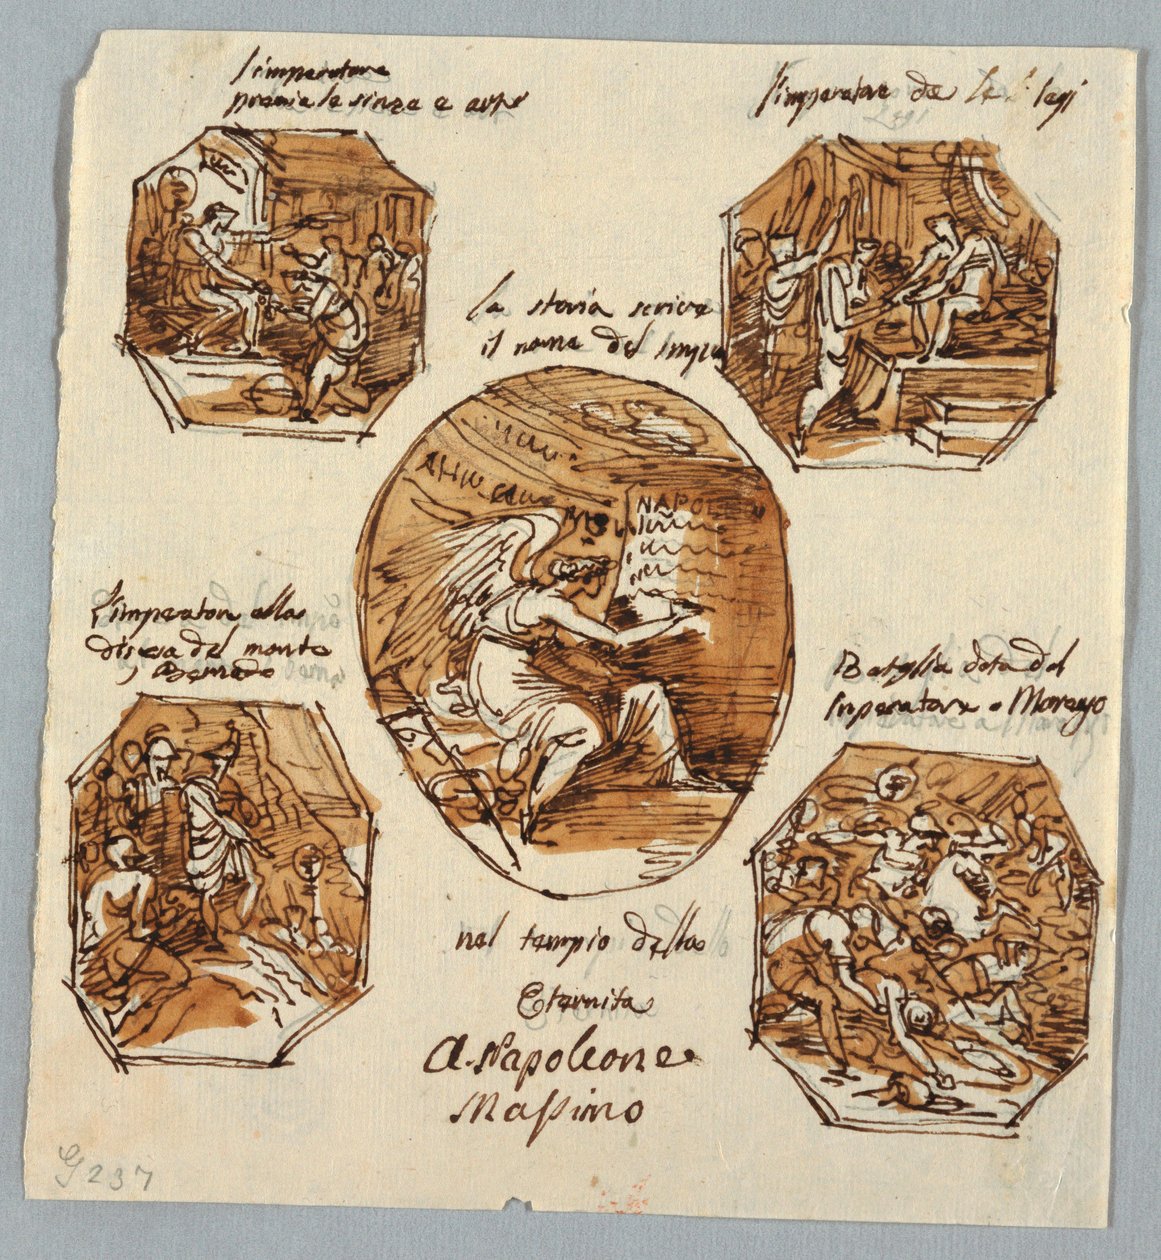 l'imperatore
premia le sienze e arti
l'imperatore da le legi
la storia scrive
il nome del Imp
NAPOLEON
l'imperator alla
disesa del monte
S Bernardo
Bataglia data dal
Inperatore a Marengo
nel tempio della
Eternita
A. Napoleone
Massimo
G 237